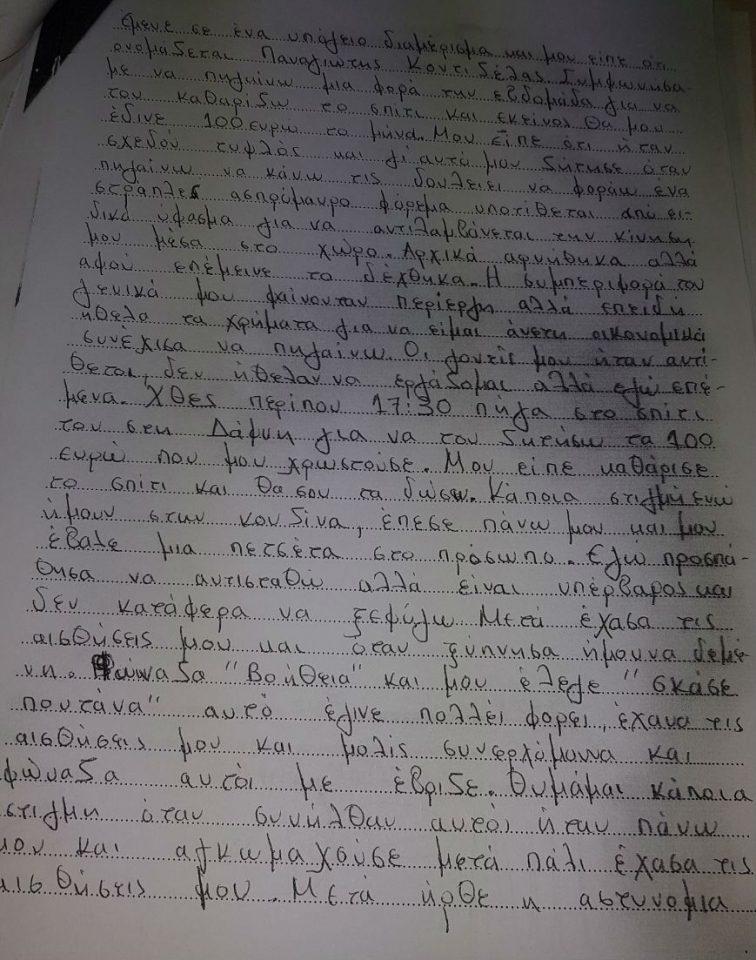 έμενε σε ένα υπόγειο διαμέρισμα και μου είπε ότι
ονομάζεται Παναγιώτης Κοντιδέλας Συμφώνησα-
με να πηγαίνω μια φορα την εβδομάδα για να
του καθαρίζω το σπίτι και εκείνος θα μου
έδινε 100 ευρω το μήνα. Μου είπε ότι ήταν
σχεδόν τυφλός και γι αυτό μου ζήτησε όταν
πηγαίνω να κάνω τις δουλειες να φοράω ένα
στραπλες ασπρόμαυρο φόρεμα υποτίθεται από ει-
δικό υφασμα για να αντιλαμβάνεται την κίνηση
μου μέσα στο χώρο. Αρχικά αρνήθηκα αλλά
αφού επέμεινε το δέχθηκα. Η συμπεριφορά του
γενικά μου φαίνονταν περίεργη αλλά επειδή
ήθελα τα χρήματα για να είμαι άνετη οικονομικά
συνέχισα να πηγαίνω. Οι γονείς μου ήταν αντί-
θετοι, δεν ήθελαν να εργάζομαι αλλά εγώ επέ-
μενα. Χθες περίπου 17:30 πήγα στο σπίτι
του στη Δάφνη για να του ζητήσω τα 100
ευρώ που μου χρωστούσε. Μου είπε καθάρισε
το σπίτι και θα σου τα δώσω. Κάποια στιγμή ενώ
ήμουν στην κουζίνα, έπεσε πάνω μου και μου
έβαλε μια πετσέτα στο πρόσωπο. Εγώ προσπά-
θησα να αντισταθώ αλλά είναι υπέρβαρος και
δεν κατάφερα να ξεφύγω Μετά έχασα τις
αισθήσεις μου και όταν ξύπνησα ήμουνα δεμέ-
νη. Φώναζα "Βοήθεια" και μου έλεγε "σκάσε
πουτάνα" αυτό έγινε πολλές φορές, έχανα τις
αισθήσεις μου και μόλις συνερχόμουνα και
φώναζα αυτός με έβριζε. Θυμάμαι κάποια
στιγμη όταν συνήλθαν αυτός ήταν πάνω
μου και αγκωμαχούσε μετά πάλι έχασα τις
αισθήσεις μου. Μετά ήρθε η αστυνομια